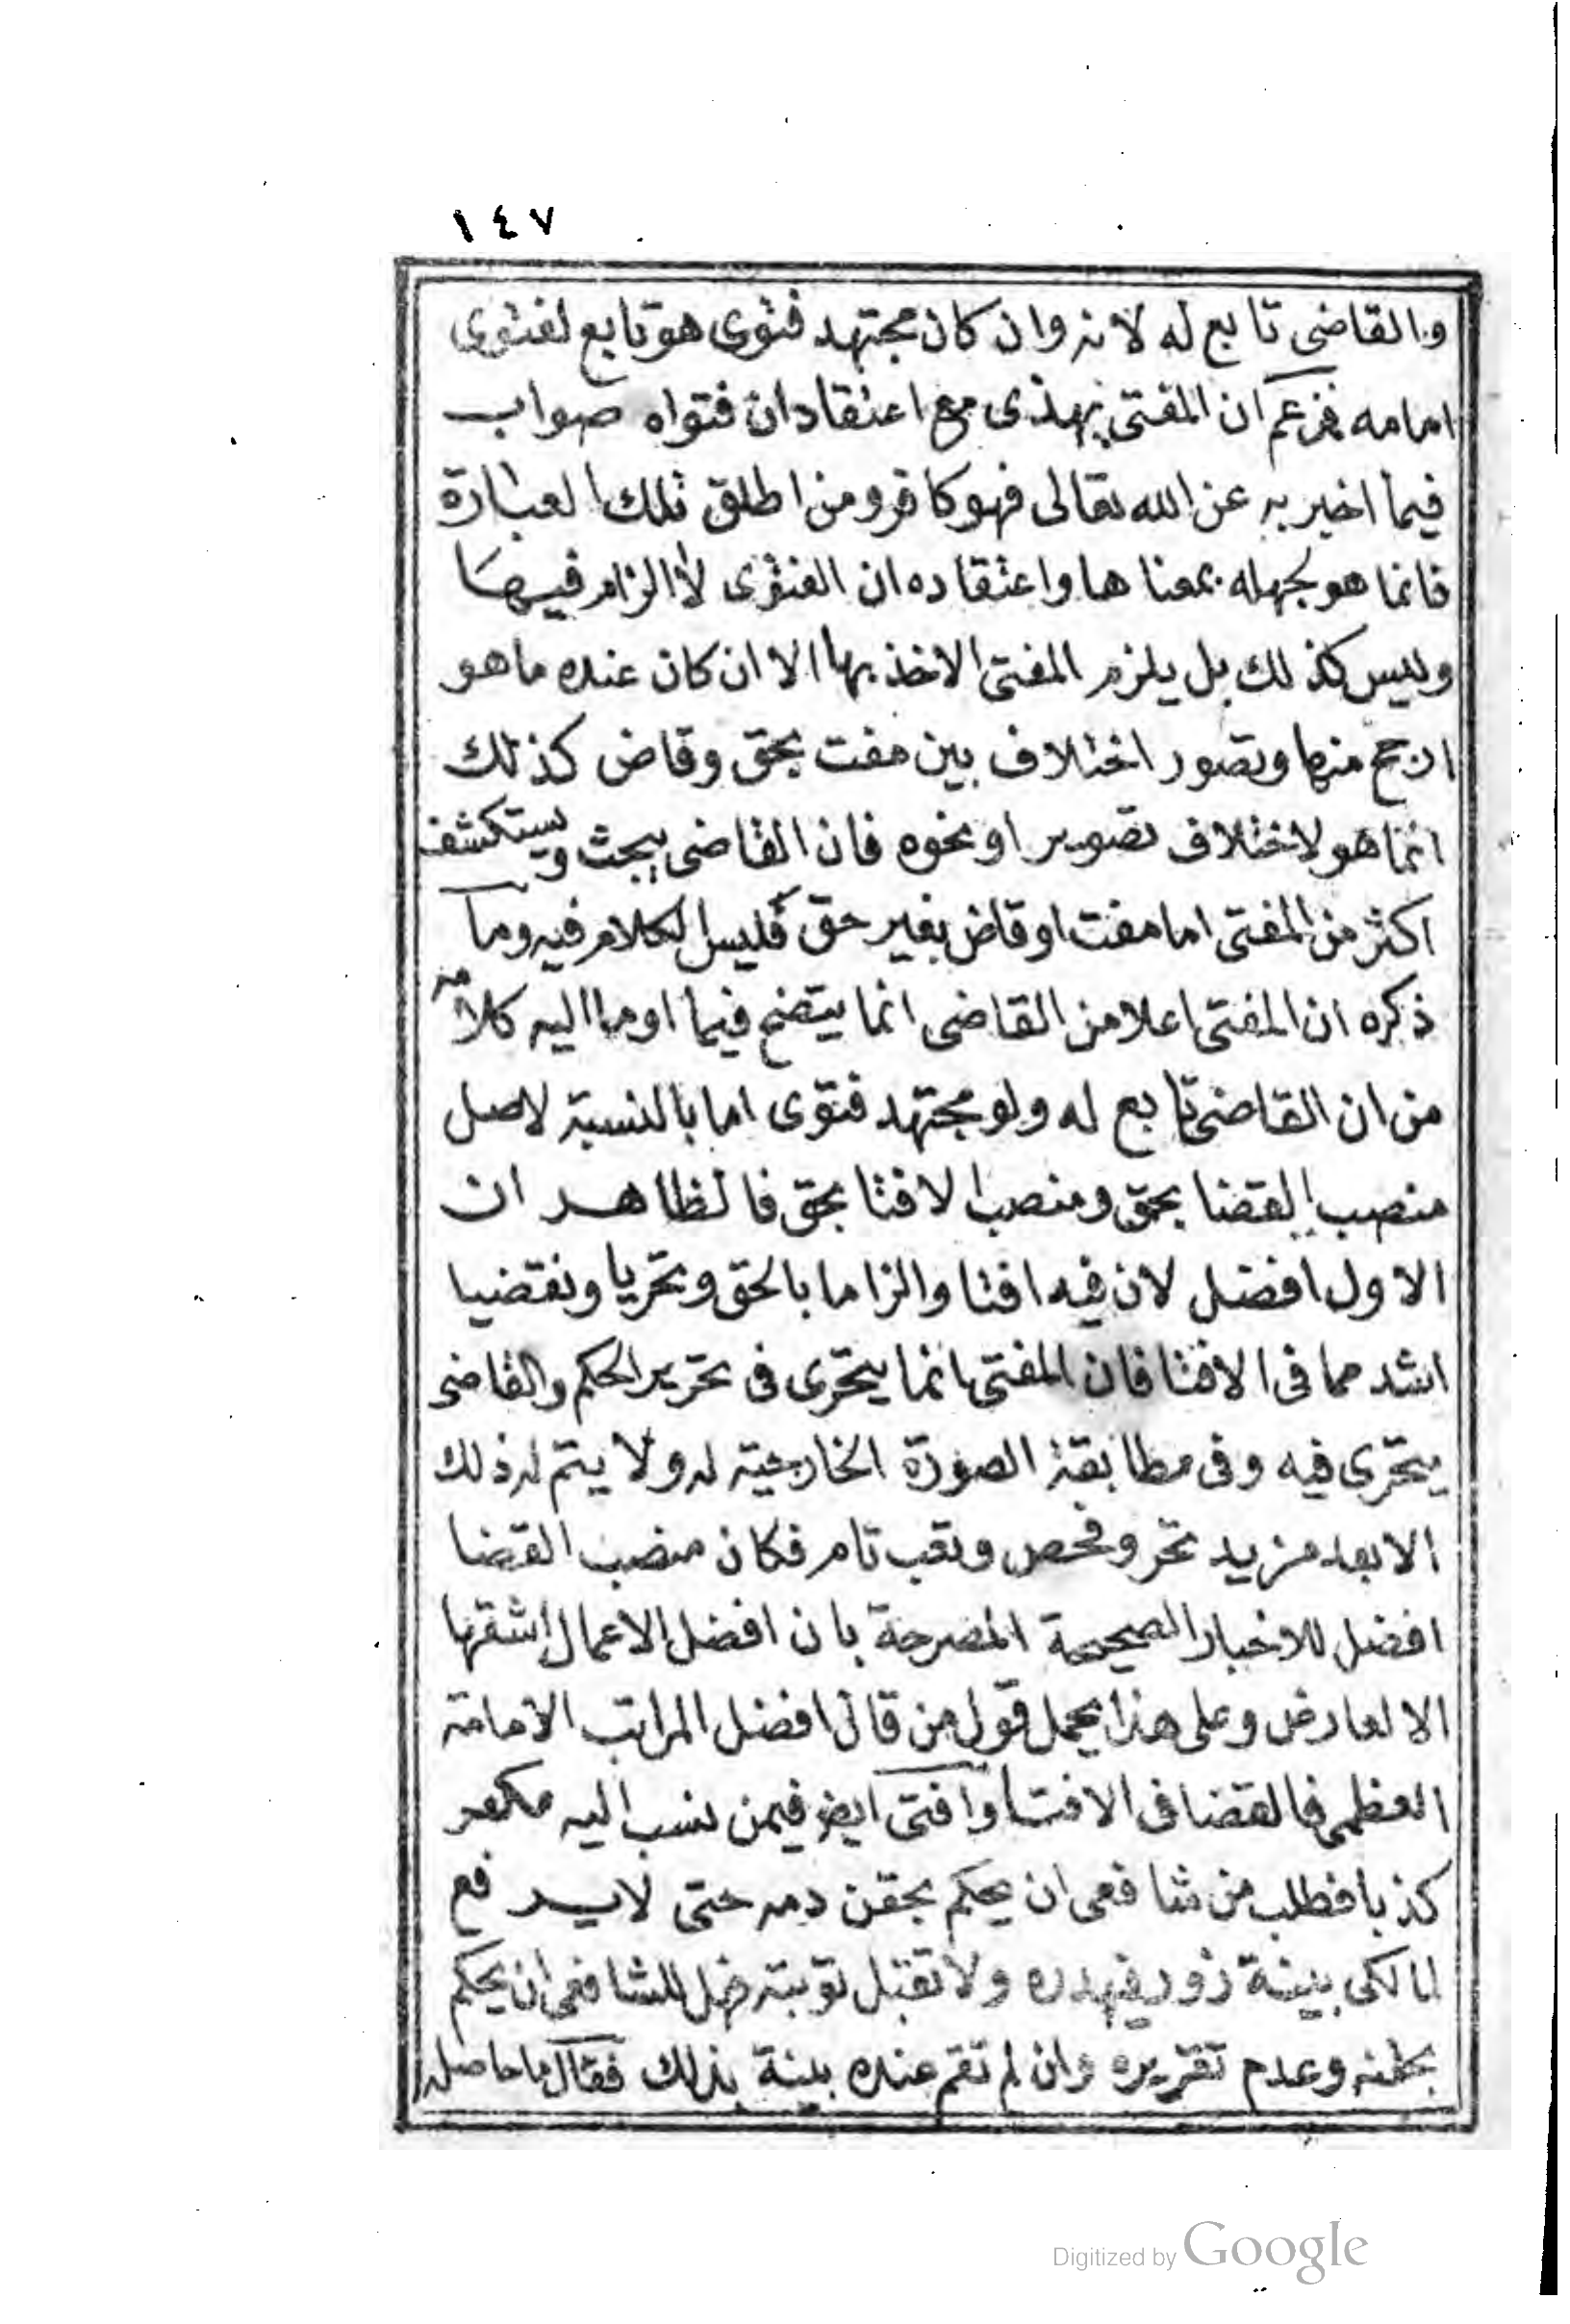 ١٤٧
والقاضى تابع له لانه وان كان مجتهد فتوى هو تابع لفتوى
امامه فزعم ان المفتى يهذى مع اعتقاد ان فتواه صواب
فيما اخبر به عن الله تعالى فهو كافر ومن اطلق تلك العبارة
فانما هو لجهله بمعناها واعتقاده ان الفتوى لا الزام فيها
وليس كذلك بل يلزم المفتى الاخذ بها الا ان كان عنده ما هو
ارجح منها وتصور اختلاف بين مفت بحق وقاض كذلك
انما هو لاختلاف تصوير او نحوه فان القاضى يبحث ويستكشف
اكثر من المفتى اما مفت او قاض بغير حق فليس الكلام فيه وما
ذكره ان المفتى اعلا من القاضى انما يتضح فيما اوما اليه كلامه
من ان القاضى تابع له ولو مجتهد فتوى اما بالنسبة لاصل
منصب القضا بحق ومنصب الافتا بحق فالظاهر ان
الاول افضل لان فيه افتا والزاما بالحق وتحريا وتقضيا
اشد مما فى الافتا فان المفتى انما يتحرى فى تحرير الحكم والقاضى
يتحرى فيه وفى مطابقة الصورة الخارجية له ولا يتم له ذلك
الا بعد مزيد تحر وفحص وتعب تام فكان منصب القضا
افضل للاخبار الصحيحة المصرحة بان افضل الاعمال اشقها
الا لعارض وعلى هذا يحمل قول من قال افضل المراتب الامامة
العظمى فالقضا فى الافتا وافتى ايضا فيمن نسب اليه مكفر
كذبا فطلب من شافعى ان يحكم بحقن دمه حتى لا يرفع
لمالكى ببينة زور فيهدره ولا تقبل توبته فهل للشافعى ان يحكم
بحقنه وعدم تقريره وان لم تقم عنده بينة بذلك فقال ما حاصله
Digitized by Google